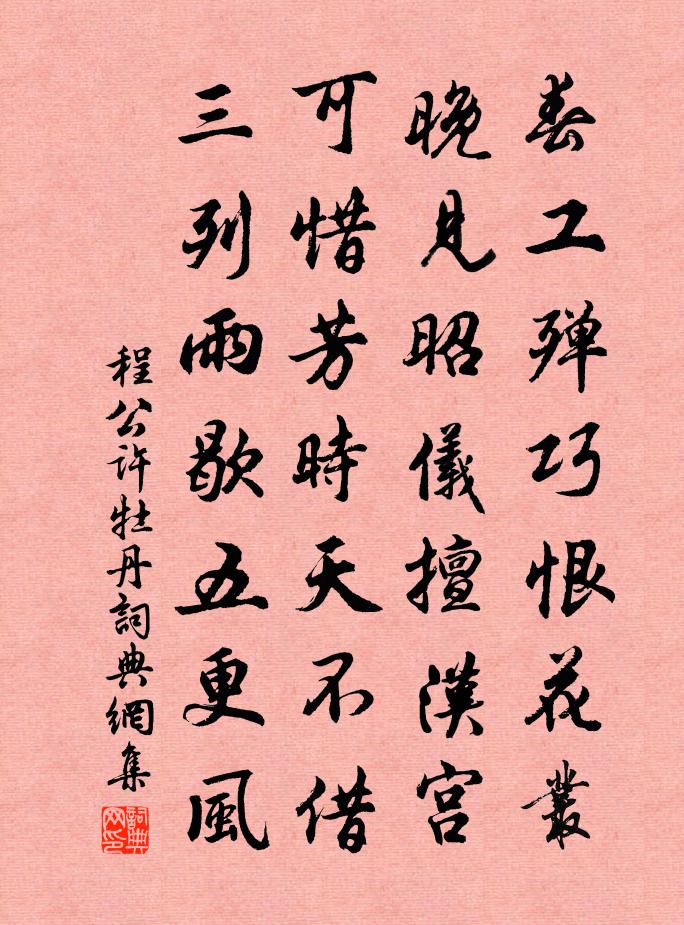 春工殫巧恨花叢
晚見昭儀擅漢宮
可惜芳時天不借
三列雨歇五更風
程公許牡丹詞典網集
詞典網印